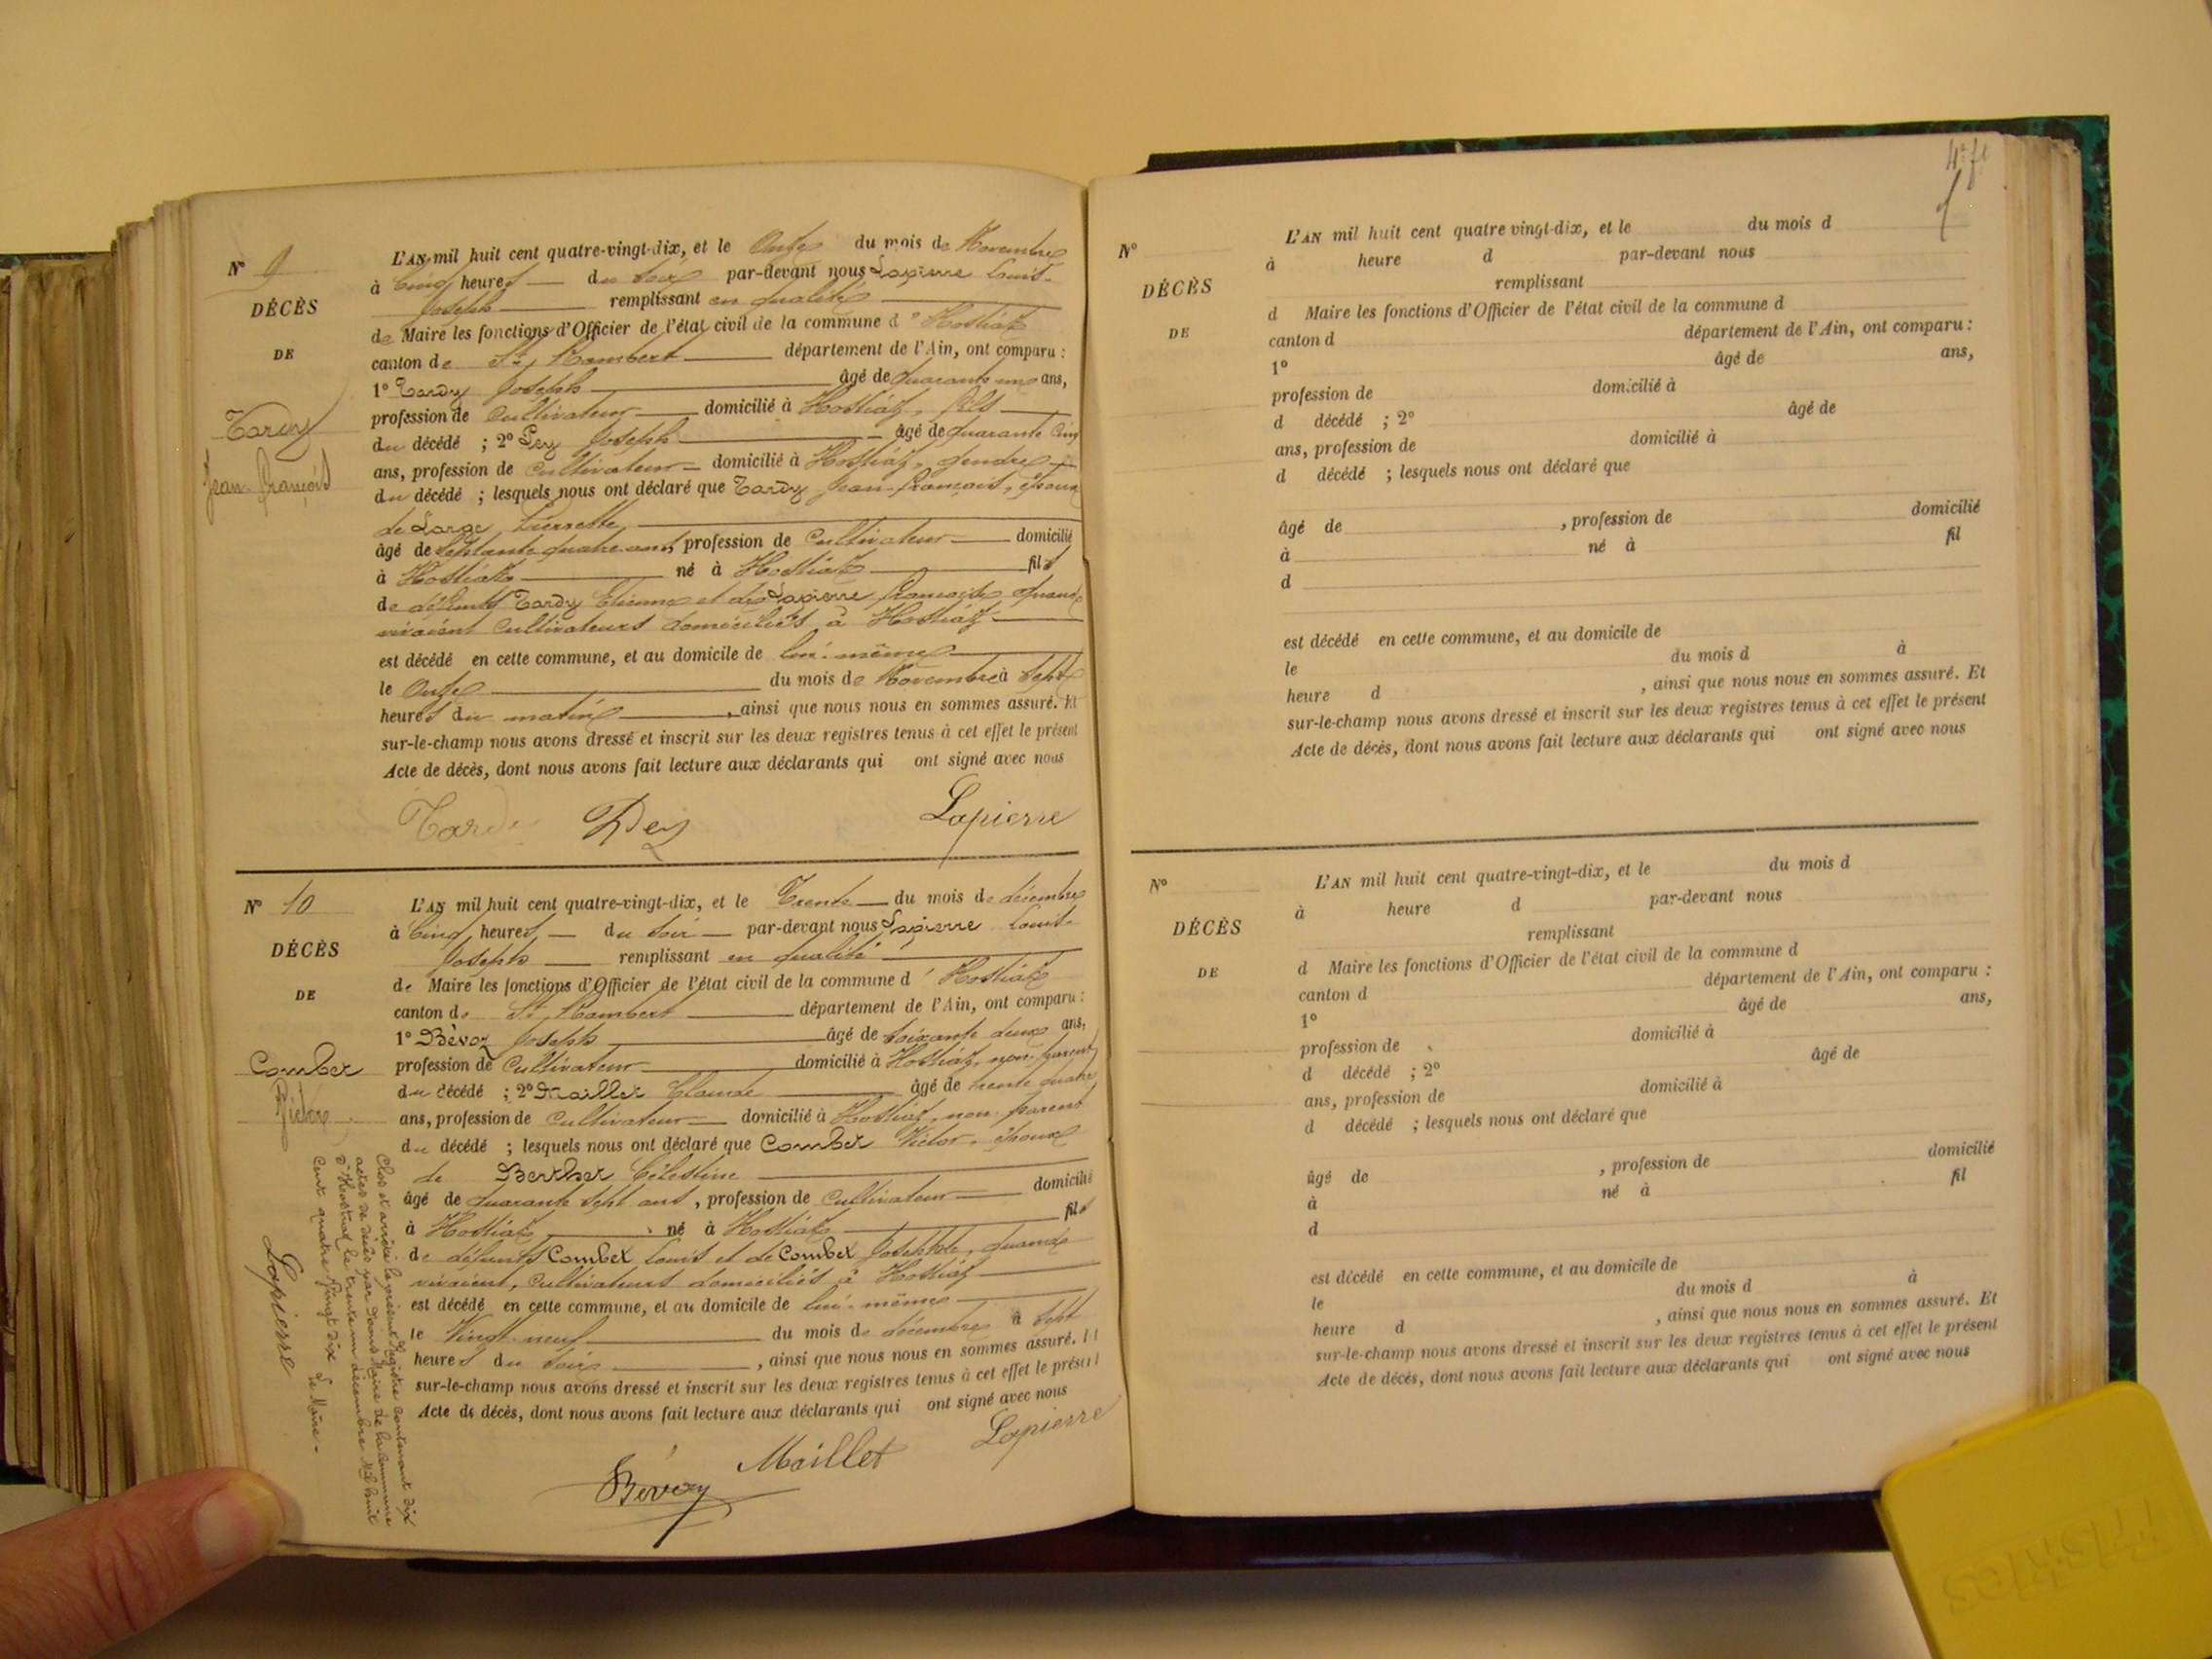 N° 9
DÉCÈS
DE
Tardy
Jean-françois
L'AN mil huit cent quatre-vingt-dix, et le Onze du mois de Novembre
à Cinq heures du soir par-devant nous Lapierre Louis-
Joseph remplissant en qualité
de Maire les fonctions d'Officier de l'état civil de la commune d'Hostiaz
canton de St Rambert département de l'Ain, ont comparu :
1° Tardy Joseph âgé de quarante un ans,
profession de Cultivateur domicilié à Hostiaz, fils
du décédé ; 2° Pey Joseph âgé de quarante cinq
ans, profession de Cultivateur domicilié à Hostiaz, gendre
du décédé ; lesquels nous ont déclaré que Tardy Jean-françois, époux
de Large Pierrette
âgé de septante quatre ans, profession de Cultivateur domicilié
à Hostiaz né à Hostiaz fils
de défunts Tardy Etienne et de Lapierre françoise, quand
vivaient Cultivateurs domiciliés à Hostiaz
est décédé en cette commune, et au domicile de lui-même
le Onze du mois de Novembre à sept
heures du matin, ainsi que nous nous en sommes assuré. Et
sur-le-champ nous avons dressé et inscrit sur les deux registres tenus à cet effet le présent
Acte de décès, dont nous avons fait lecture aux déclarants qui ont signé avec nous
Tardy Pey Lapierre
N° 10
DÉCÈS
DE
Combet
L'AN mil huit cent quatre-vingt-dix, et le Trente du mois de décembre
à Cinq heures du soir par-devant nous Lapierre Louis-
Joseph remplissant en qualité
de Maire les fonctions d'Officier de l'état civil de la commune d'Hostiaz
canton de St Rambert département de l'Ain, ont comparu :
1° Bévoz Joseph âgé de soixante deux ans,
profession de Cultivateur domicilié à Hostiaz, non parent
du décédé ; 2° Maillet Claude âgé de trente quatre
ans, profession de Cultivateur domicilié à Hostiaz, non parent
du décédé ; lesquels nous ont déclaré que Combet Victor, époux
de Berthet Célestine
âgé de quarante sept ans, profession de Cultivateur domicilié
à Hostiaz né à Hostiaz fils
de défunts Combet Louis et de Combet Josephte, quand
vivaient, Cultivateurs domiciliés à Hostiaz
est décédé en cette commune, et au domicile de lui-même
le Vingt-neuf du mois de décembre à sept
heures du soir, ainsi que nous nous en sommes assuré. Et
sur-le-champ nous avons dressé et inscrit sur les deux registres tenus à cet effet le présent
Acte de décès, dont nous avons fait lecture aux déclarants qui ont signé avec nous
Bévoz Maillet Lapierre
Clos et arrêté le présent Registre contenant dix
actes de décès par nous Maire de la Commune
d'Hostiaz le trente un décembre Mil huit
cent quatre Vingt dix Le Maire.
Lapierre
N°
DÉCÈS
DE
L'AN mil huit cent quatre vingt-dix, et le du mois d
à heure d par-devant nous
remplissant
d Maire les fonctions d'Officier de l'état civil de la commune d
canton d département de l'Ain, ont comparu :
1° âgé de ans,
profession de domicilié à
d décédé ; 2° âgé de
ans, profession de domicilié à
d décédé ; lesquels nous ont déclaré que
âgé de , profession de domicilié
à né à fil
d
est décédé en cette commune, et au domicile de
le du mois d à
heure d , ainsi que nous nous en sommes assuré. Et
sur-le-champ nous avons dressé et inscrit sur les deux registres tenus à cet effet le présent
Acte de décès, dont nous avons fait lecture aux déclarants qui ont signé avec nous
N°
DÉCÈS
DE
L'AN mil huit cent quatre-vingt-dix, et le du mois d
à heure d par-devant nous
remplissant
d Maire les fonctions d'Officier de l'état civil de la commune d
canton d département de l'Ain, ont comparu :
1° âgé de ans,
profession de domicilié à
d décédé ; 2° âgé de
ans, profession de domicilié à
d décédé ; lesquels nous ont déclaré que
âgé de , profession de domicilié
à né à fil
d
est décédé en cette commune, et au domicile de
le du mois d à
heure d , ainsi que nous nous en sommes assuré. Et
sur-le-champ nous avons dressé et inscrit sur les deux registres tenus à cet effet le présent
Acte de décès, dont nous avons fait lecture aux déclarants qui ont signé avec nous